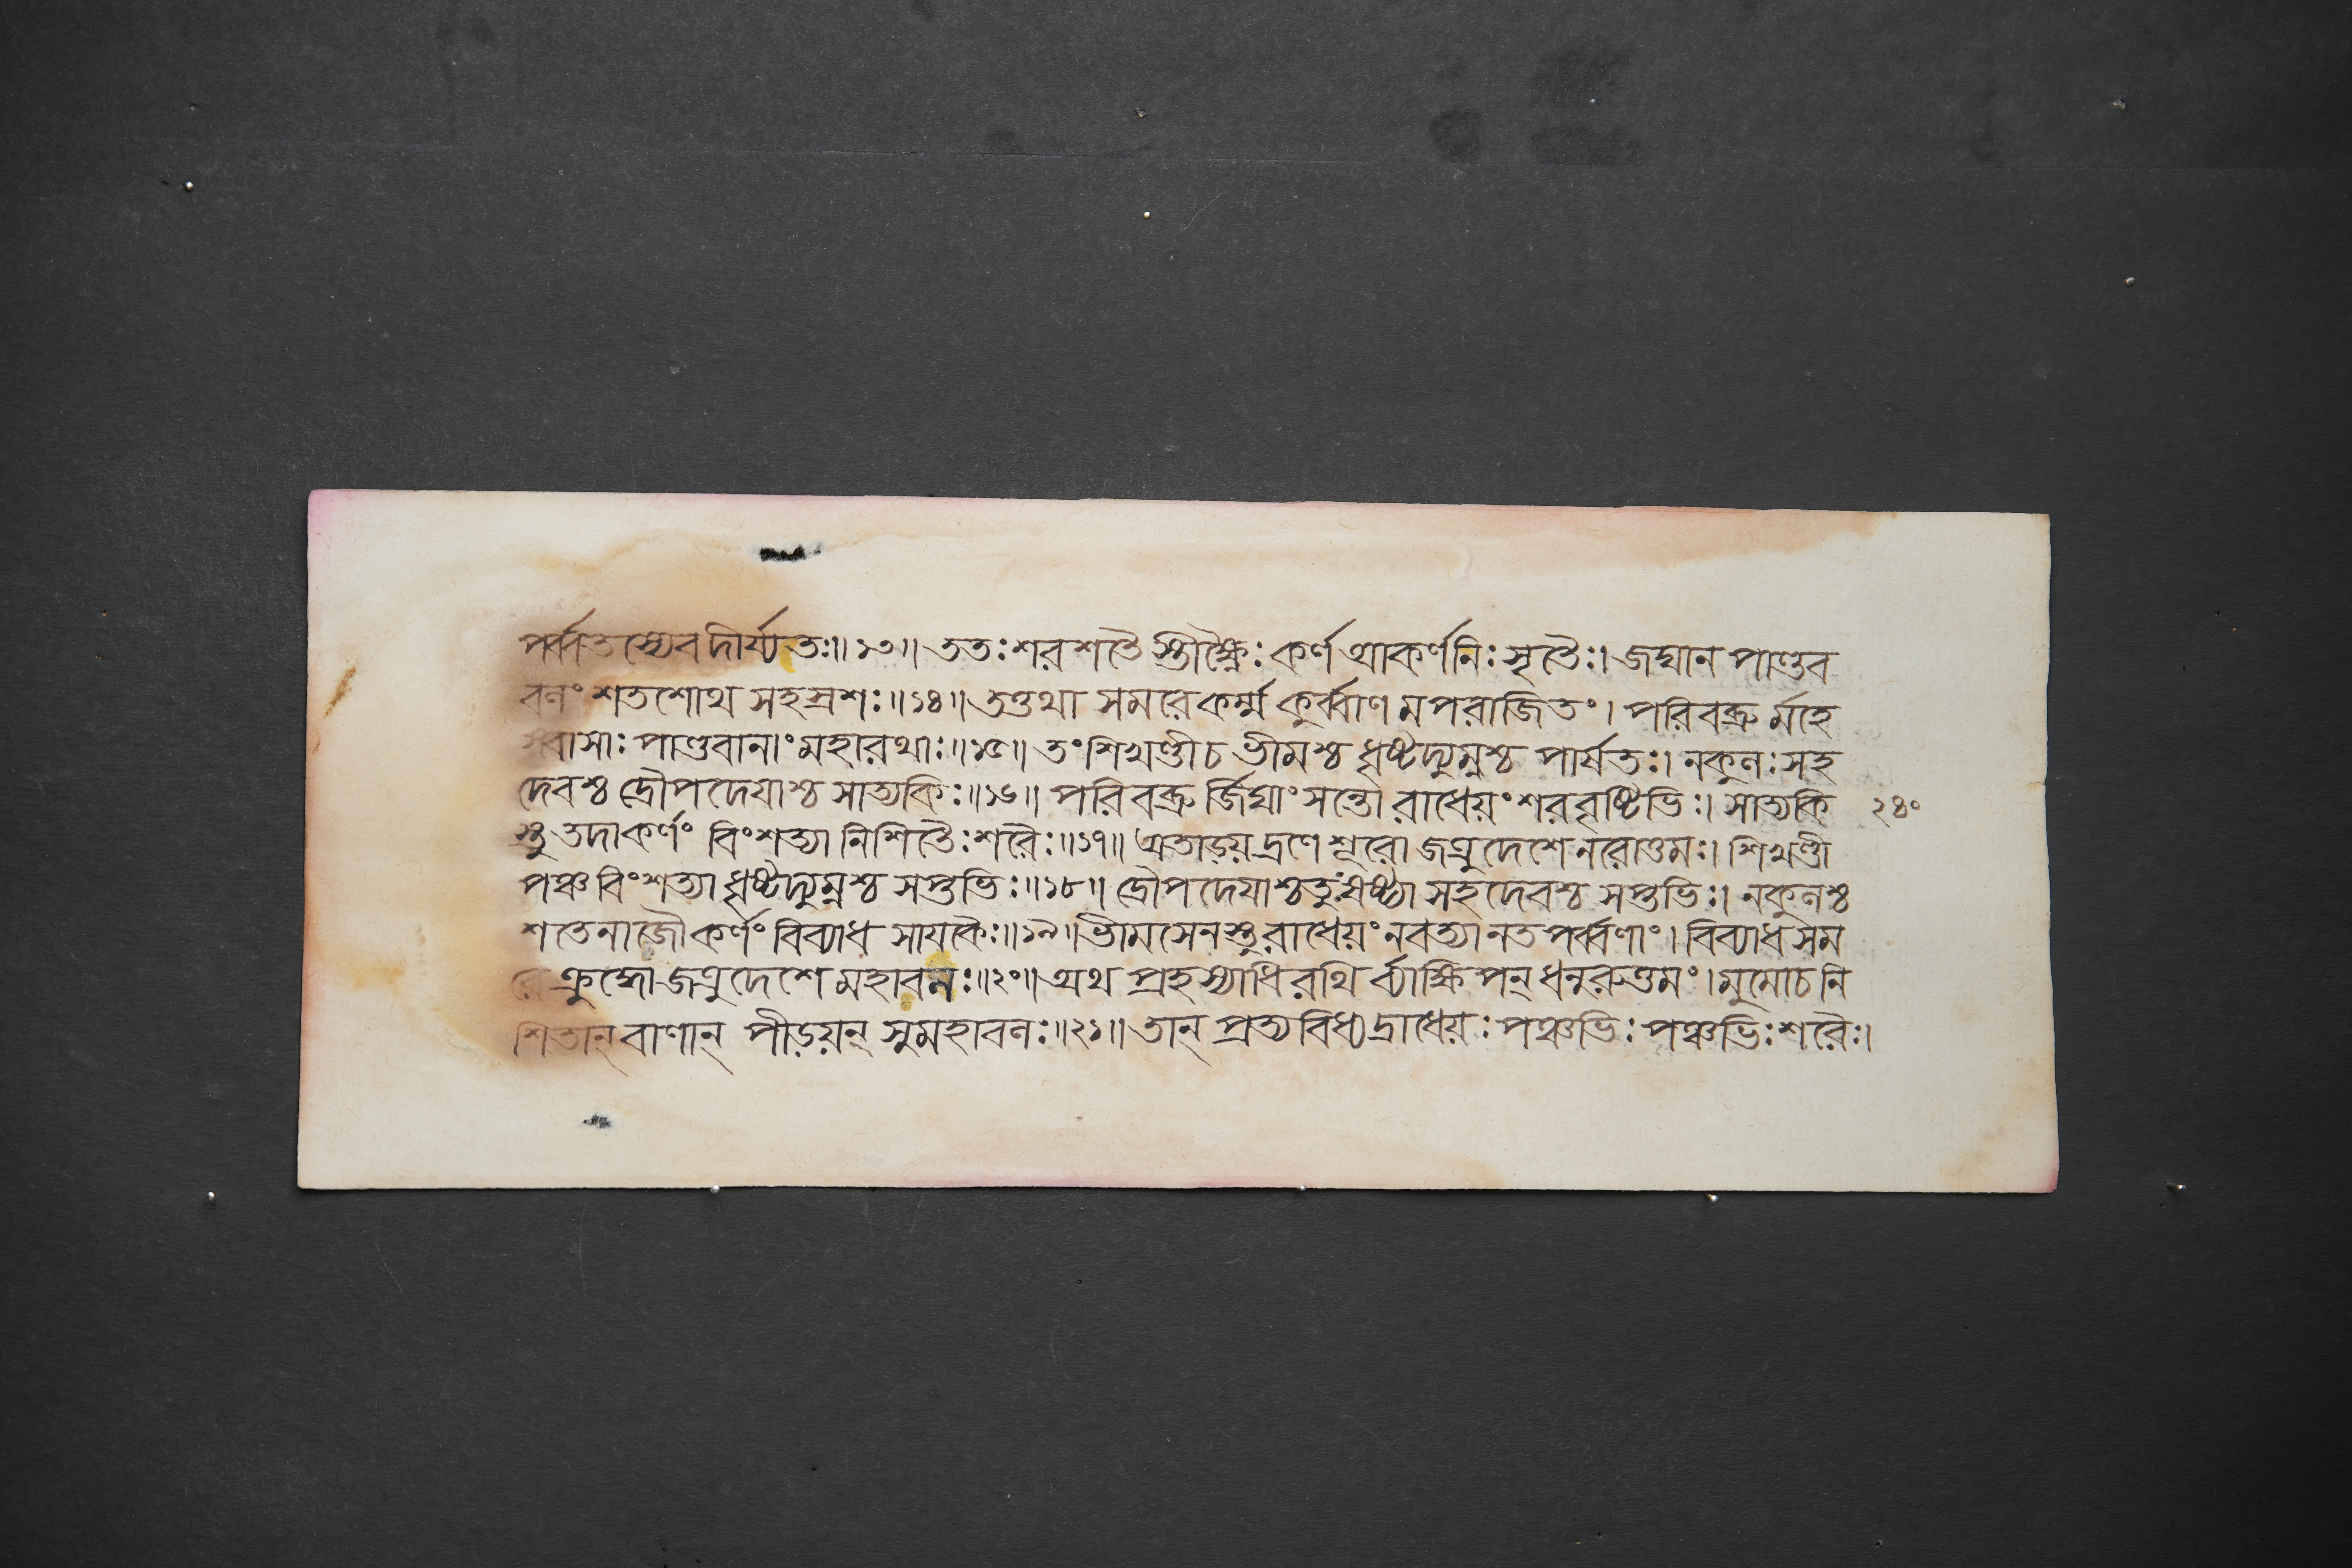 পর্ব্বতস্যেব দীর্য্যতঃ॥১৩॥ ততঃ শরশতৈ স্তীক্ষ্ণৈঃ কর্ণ আকর্ণনিঃসৃতৈঃ। জঘান পাণ্ডব
বলং শতশোথ সহস্রশঃ॥১৪॥ তত্তথা সমরে কর্ম্ম কুর্ব্বাণ মপরাজিতং। পরিবব্রু র্মহে
ষ্বাসাঃ পাণ্ডবানাং মহারথাঃ॥১৫॥ তং শিখণ্ডী চ ভীমশ্চ ধৃষ্টদ্যুম্নশ্চ পার্ষতঃ। নকুলঃ সহ
দেবশ্চ দ্রৌপদেয়াশ্চ সাত্যকিঃ॥১৬॥ পরিবব্রু র্জিঘাংসন্তো রাধেয়ং শরবৃষ্টিভিঃ। সাত্যকি
স্তু তদা কর্ণং বিংশত্যা নিশিতৈঃ শরৈঃ॥১৭॥ অতাড়য় দ্রণে শূরো জত্রুদেশে নরোত্তমঃ। শিখণ্ডী
পঞ্চ বিংশত্যা ধৃষ্টদ্যুম্নশ্চ সপ্তভিঃ॥১৮॥ দ্রৌপদেয়াশ্চতুঃষষ্ট্যা সহদেবশ্চ সপ্তভিঃ। নকুলশ্চ
শতেনাজৌ কর্ণং বিব্যাধ সায়কৈঃ॥১৯॥ ভীমসেনস্তু রাধেয়ং নবত্যা নতপর্ব্বণাং। বিব্যাধ সম
রে ক্রুদ্ধো জত্রুদেশে মহাবলঃ॥২০॥ অথ প্রহস্যাধিরথি র্ব্যাক্ষিপন্ ধনুরুত্তমং। মুমোচ নি
শিতান্ বাণান্ পীড়য়ন্ সুমহাবলঃ॥২১॥ তান্ প্রত্যবিধ্যদ্রাধেয়ঃ পঞ্চভিঃ পঞ্চভিঃ শরৈঃ।
২৪০